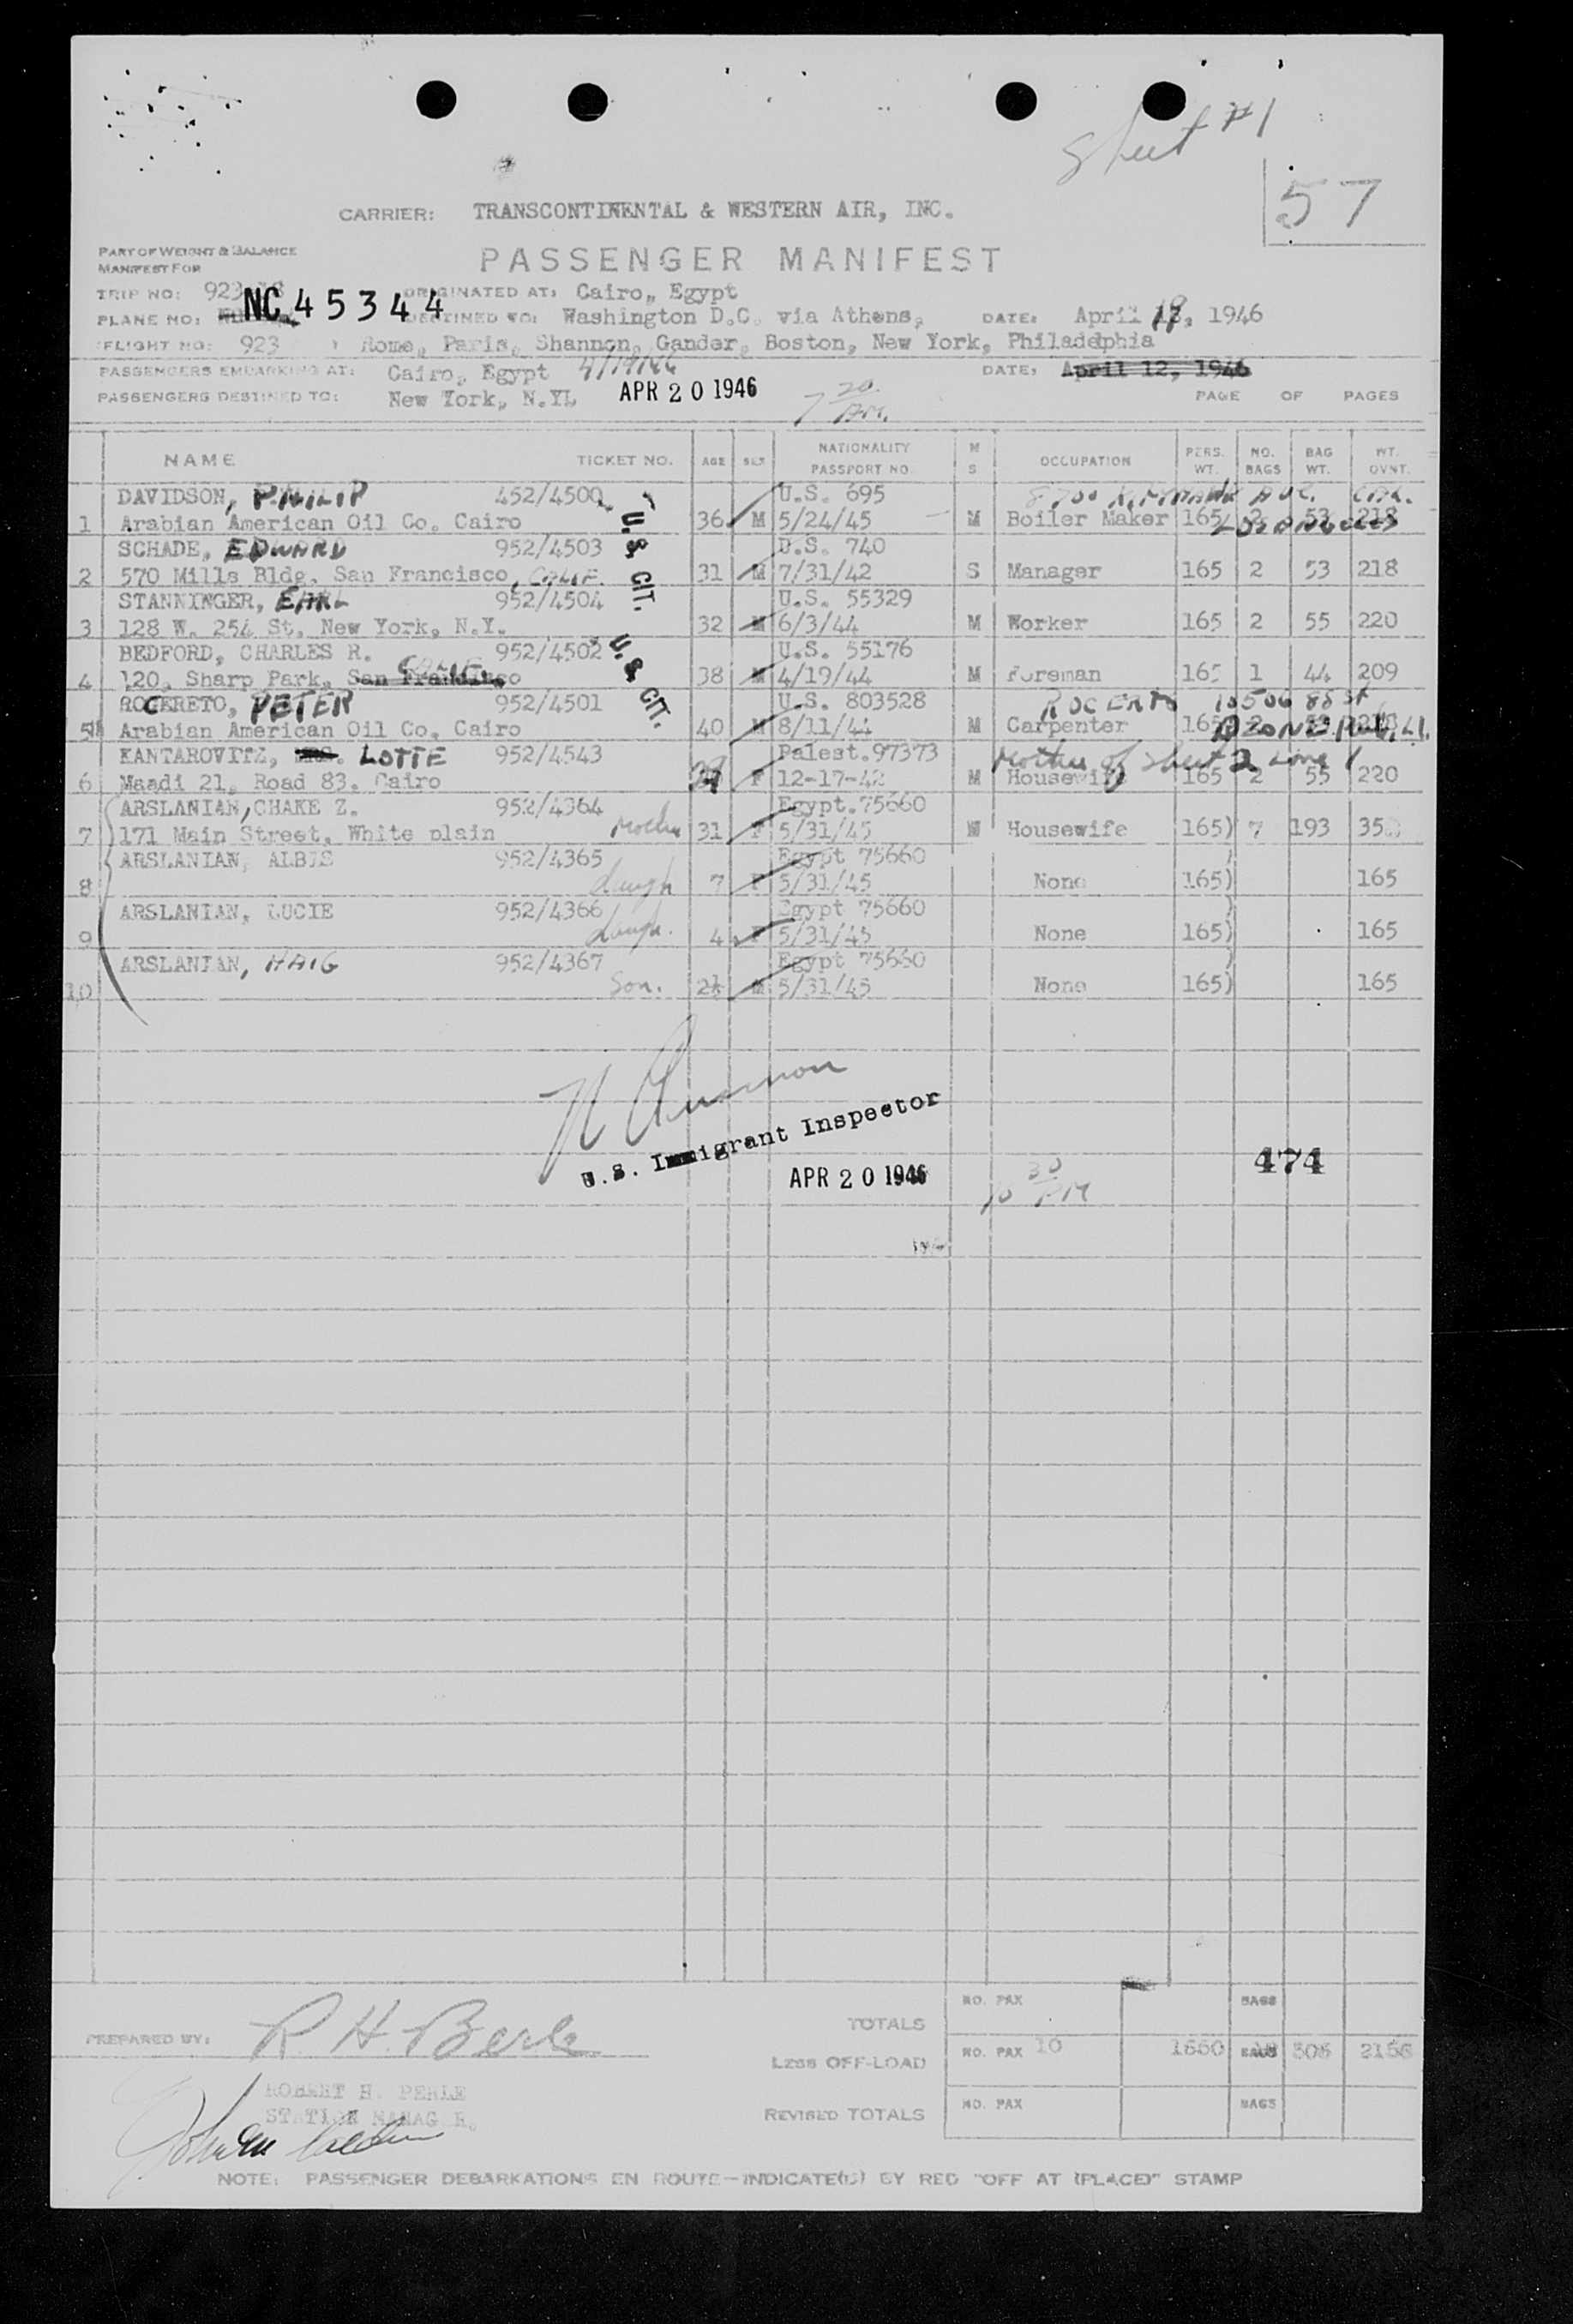 Sheet #1
57
CARRIER: TRANSCONTINENTAL & WESTERN AIR, INC.
PART OF WEIGHT & BALANCE
MANIFEST FOR
PASSENGER MANIFEST
TRIP NO: 923 ORIGINATED AT: Cairo, Egypt
PLANE NO: NC 45344 DESTINED TO: Washington D.C. via Athens, DATE: April 19, 1946
FLIGHT NO: 923 Rome, Paris, Shannon, Gander, Boston, New York, Philadelphia
PASSENGERS EMBARKING AT: Cairo, Egypt 4/19/46 DATE: April 12, 1946
PASSENGERS DESTINED TO: New York, N.YL APR 20 1946 7 20 AM. PAGE OF PAGES
NAME TICKET NO. AGE SEX NATIONALITY PASSPORT NO. M S OCCUPATION PERS. WT. NO. BAGS BAG WT. WT. OVNT.
DAVIDSON, PHILIP 452/4500 U.S. 695 AVE. CAL.
1 Arabian American Oil Co. Cairo 36 M 5/24/45 M Boiler Maker 165 2 53 218 LOS ANGELES
SCHADE, EDWARD 952/4503 U.S. 740
2 570 Mills Bldg. San Francisco, CALIF. 31 M 7/31/42 S Manager 165 2 53 218
U.S. CIT.
STANNINGER, EARL 952/4504 U.S. 55329
3 128 W. 254 St. New York, N.Y. 32 M 6/3/44 M Worker 165 2 55 220
BEDFORD, CHARLES R. 952/4502 U.S. 55176
4 120, Sharp Park, San Francisco CALIF. 38 M 4/19/44 M Foreman 165 1 44 209
U.S. CIT.
ROCERETO, PETER 952/4501 U.S. 803528 ROCERTO 10506 88 St
5 Arabian American Oil Co. Cairo 40 M 8/11/44 M Carpenter 165 2 53 218 OZONE Park, L.I.
KANTAROVITZ, LOTTE 952/4543 Palest. 97373 Mother of Sheet 2 Line 1
6 Maadi 21, Road 83. Cairo F 12-17-42 M Housewife 165 2 55 220
ARSLANIAN, CHAKE Z. 952/4364 Egypt. 75660
7 171 Main Street, White plain Mother 31 F 5/31/45 M Housewife 165) 7 193 358
ARSLANIAN, ALBIS 952/4365 Egypt 75660
8 daugh 7 F 5/31/45 None 165) 165
ARSLANIAN, LUCIE 952/4366 Egypt 75660
9 daugh. 4 F 5/31/45 None 165) 165
ARSLANIAN, HAIG 952/4367 Egypt 75660
10 Son. 2½ M 5/31/45 None 165) 165
U.S. Immigrant Inspector
APR 20 1946 10 30 PM 474
TOTALS NO. PAX BAGS
PREPARED BY: R. H. Berle
LESS OFF-LOAD NO. PAX 10 1650 BAGS 18 2156
ROBERT H. PERLE
STATION MANAGER.
REVISED TOTALS NO. PAX BAGS
NOTE: PASSENGER DEBARKATIONS EN ROUTE—INDICATE(D) BY RED "OFF AT (PLACE)" STAMP